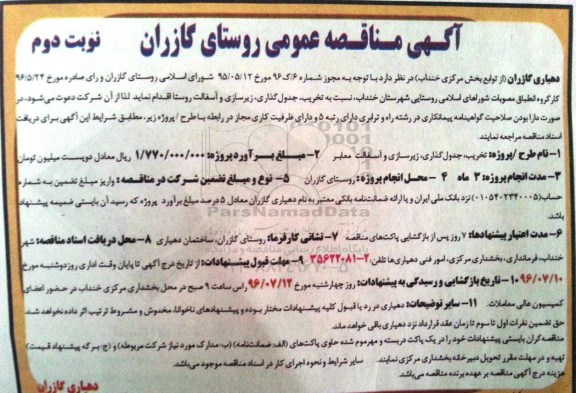 آگهی مناقصه عمومی روستای گازران
نوبت دوم
دهیاری گازران (از توابع بخش مرکزی خنداب) در نظر دارد با توجه به مجوز شماره ۶/ک۹۶ مورخ ۹۵/۰۵/۱۲ شورای اسلامی روستای گازران و رای صادره مورخ ۹۶/۵/۲۴
کارگروه انطباق مصوبات شوراهای اسلامی روستایی شهرستان خنداب، نسبت به تخریب، جدول‌گذاری، زیرسازی و آسفالت روستا اقدام نماید لذا از آن شرکت دعوت می‌شود، در
صورت دارا بودن صلاحیت گواهینامه پیمانکاری در رشته راه و ترابری دارای رتبه ۵ و دارای ظرفیت کاری مجاز در رابطه با طرح / پروژه زیر، مطابق شرایط این آگهی برای دریافت
اسناد مناقصه مراجعه نمایند.
۱- نام طرح / پروژه: تخریب، جدول‌گذاری، زیرسازی و آسفالت معابر ۲- مبلغ برآورد پروژه: ۱/۷۷۰/۰۰۰/۰۰۰ ریال معادل دویست میلیون تومان
۳- مدت انجام پروژه: ۳ ماه ۴- محل انجام پروژه: روستای گازران ۵- نوع و مبلغ تضمین شرکت در مناقصه: واریز مبلغ تضمین به شماره
حساب (۰۱۰۵۴۰۲۳۴۰۰۵) نزد بانک ملی ایران و یا ارائه ضمانتنامه بانکی معتبر به نام دهیاری گازران معادل ۵ درصد مبلغ برآورد پروژه که رسید آن بایستی ضمیمه پیشنهاد
باشد.
۶- مدت اعتبار پیشنهادها: ۷ روز پس از بازگشایی پاکت‌های مناقصه ۷- نشانی کارفرما: روستای گازران، ساختمان دهیاری ۸- محل دریافت اسناد مناقصه: شهر
خنداب، فرمانداری، بخشداری مرکزی، امور فنی دهیاری‌ها تلفن: ۲-۳۵۶۲۲۰۸۱ ۹- مهلت قبول پیشنهادات: از تاریخ درج آگهی تا پایان وقت اداری روز دوشنبه مورخ
۹۶/۰۷/۱۰ ۱۰- تاریخ بازگشایی و رسیدگی به پیشنهادات: روز چهارشنبه مورخ ۹۶/۰۷/۱۲ راس ساعت ۹ صبح در محل بخشداری مرکزی خنداب در حضور اعضای
کمیسیون عالی معاملات. ۱۱- سایر توضیحات: دهیاری در رد یا قبول کلیه پیشنهادات مختار بوده و پیشنهادهای ناخوانا، مخدوش و مشروط ترتیب اثر داده نخواهد شد.
حق تضمین نفرات اول تا سوم تا زمان عقد قرارداد نزد دهیاری باقی خواهد ماند.
مناقصه گران بایستی پیشنهادات خود را در یک پاکت دربسته و مهرموم شده حاوی پاکت‌های (الف: ضمانتنامه) (ب: مدارک مورد نیاز شرکت مربوطه) و (ج: برگه پیشنهاد قیمت)
تهیه و در مهلت مقرر تحویل دبیرخانه بخشداری مرکزی نمایند سایر شرایط و نحوه اجرای کار در اسناد مناقصه موجود می‌باشد.
هزینه درج آگهی مناقصه بر عهده برنده مناقصه می‌باشد.
دهیاری گازران
ParsNamadData